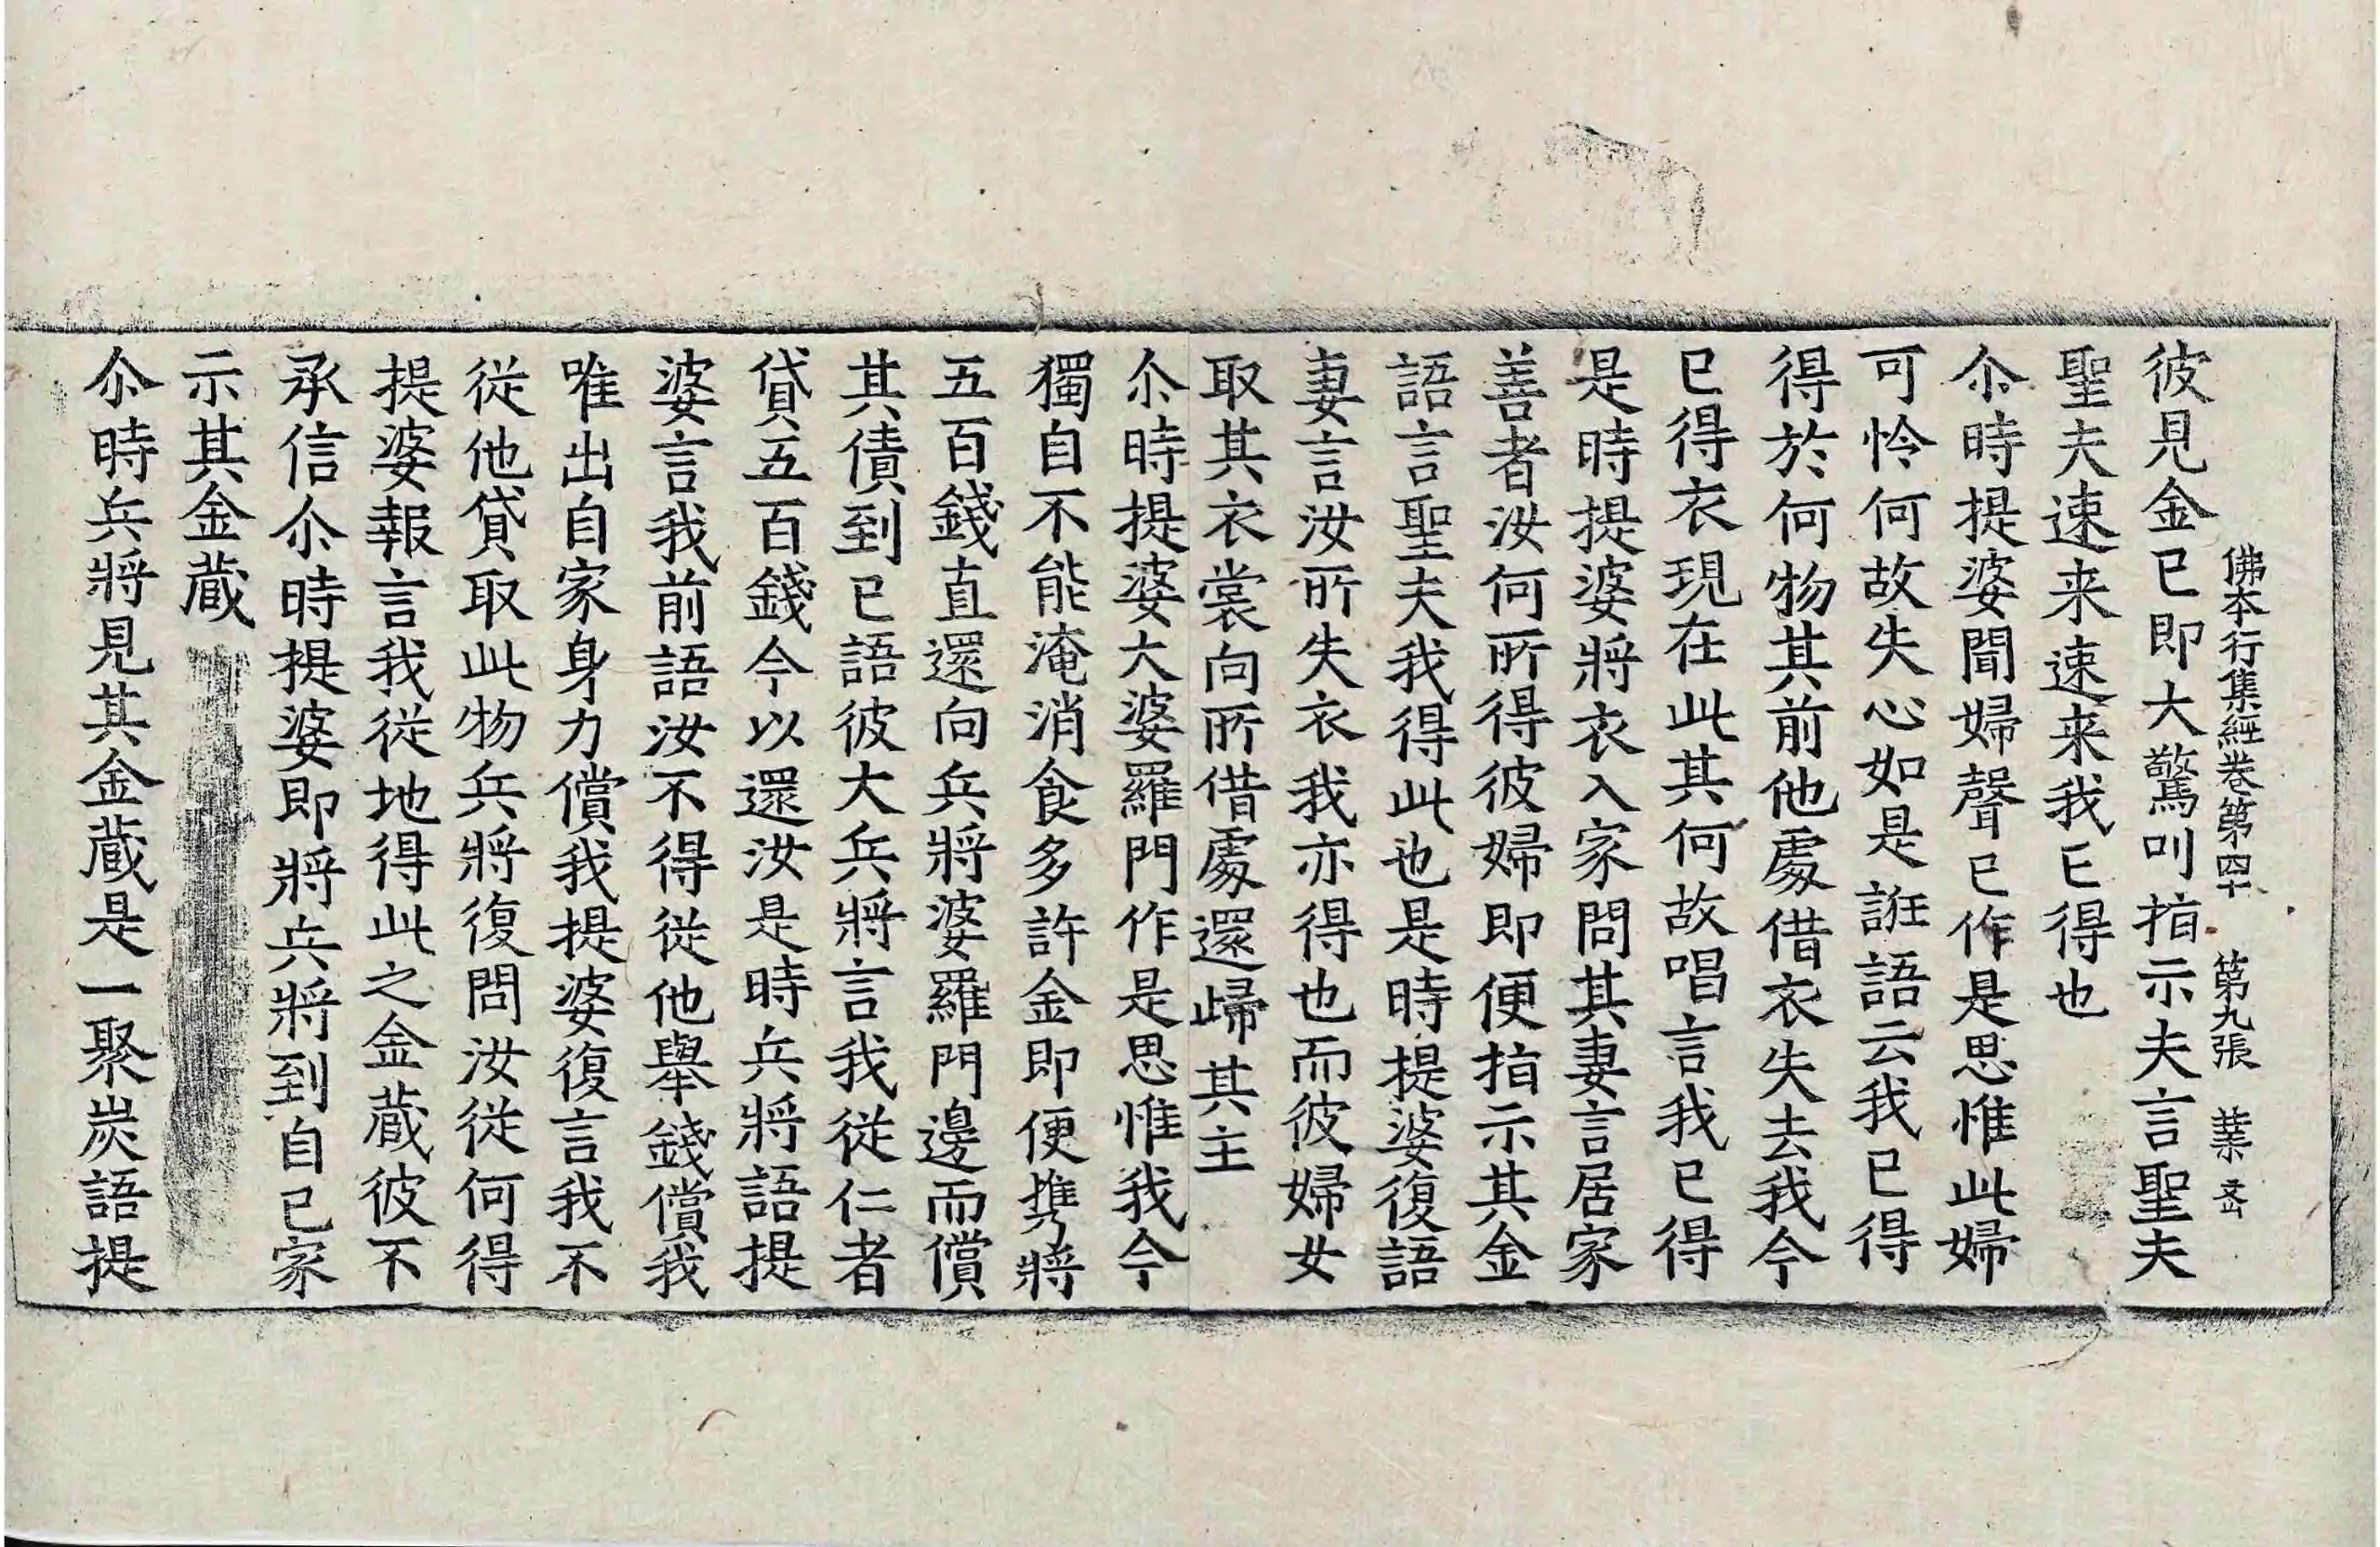 佛本行集經卷第四十 第九張 業
彼見金已即大驚叫指示夫言聖夫
聖夫速来速来我已得也
尒時提婆聞婦聲已作是思惟此婦
可怜何故失心如是誑語云我已得
得於何物其前他處借衣失去我今
已得衣現在此其何故唱言我已得
是時提婆將衣入家問其妻言居家
善者汝何所得彼婦即便指示其金
語言聖夫我得此也是時提婆復語
妻言汝所失衣我亦得也而彼婦女
取其衣裳向所借處還歸其主
尒時提婆大婆羅門作是思惟我今
獨自不能淹消食多許金即便攜將
五百錢直還向兵將婆羅門邊而償
其債到已語彼大兵將言我從仁者
貸五百錢今以還汝是時兵將語提
婆言我前語汝不得從他舉錢償我
唯出自家身力償我提婆復言我不
從他貸取此物兵將復問汝從何得
提婆報言我從地得此之金蔵彼不
承信尒時提婆即將兵將到自己家
示其金蔵
尒時兵將見其金蔵是一聚炭語提